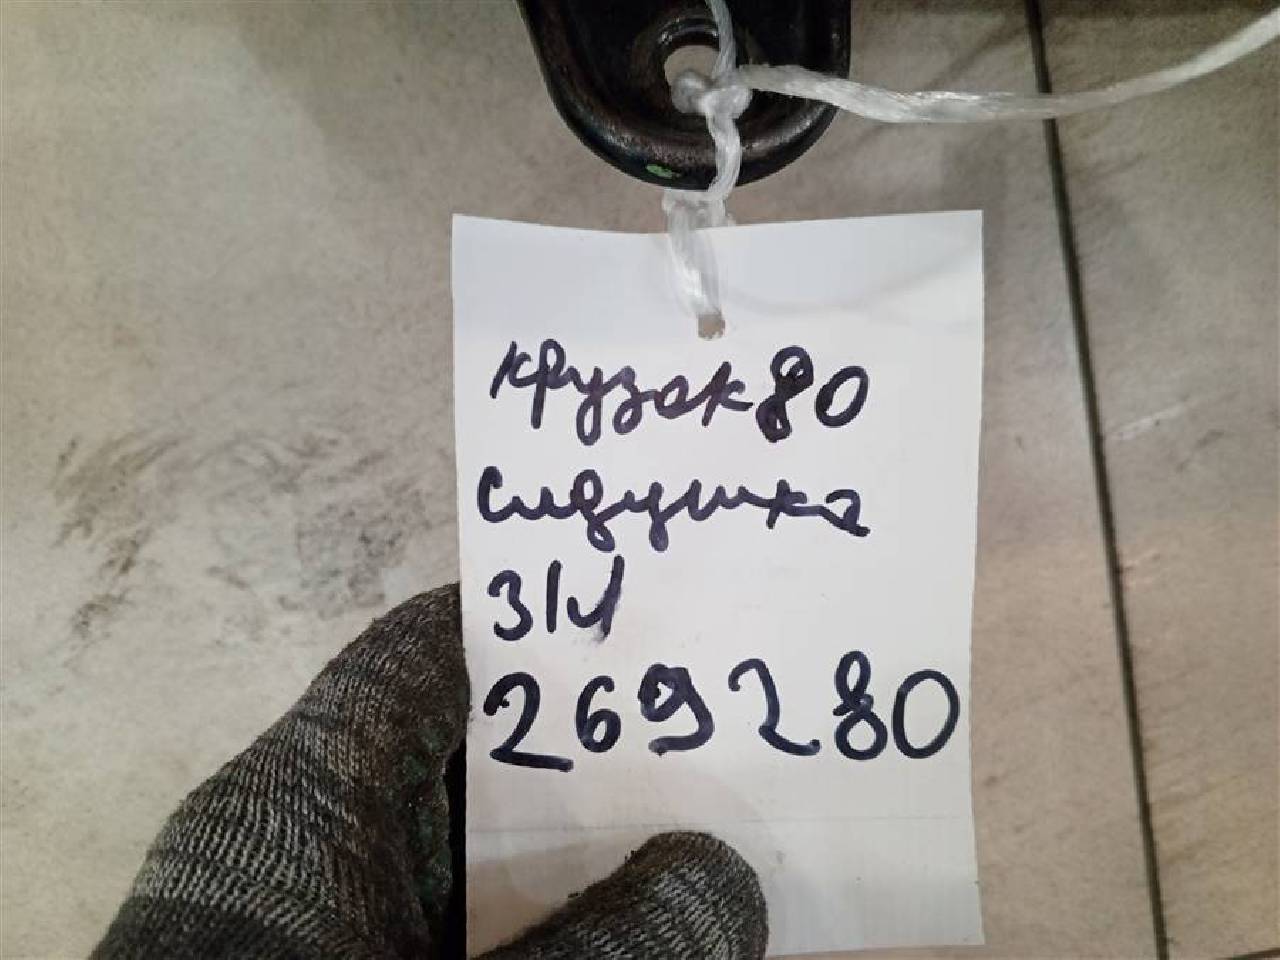 крузак 80
сидушка
З/Л
269280